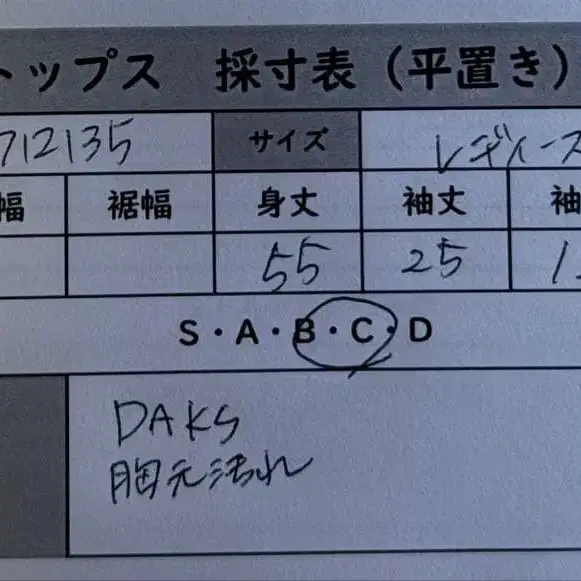 トップス 採寸表（平置き）
712135 サイズ レディース
幅 裾幅 身丈 袖丈 袖
55 25 1
S・A・B・C・D
DAKS
胸元汚れ